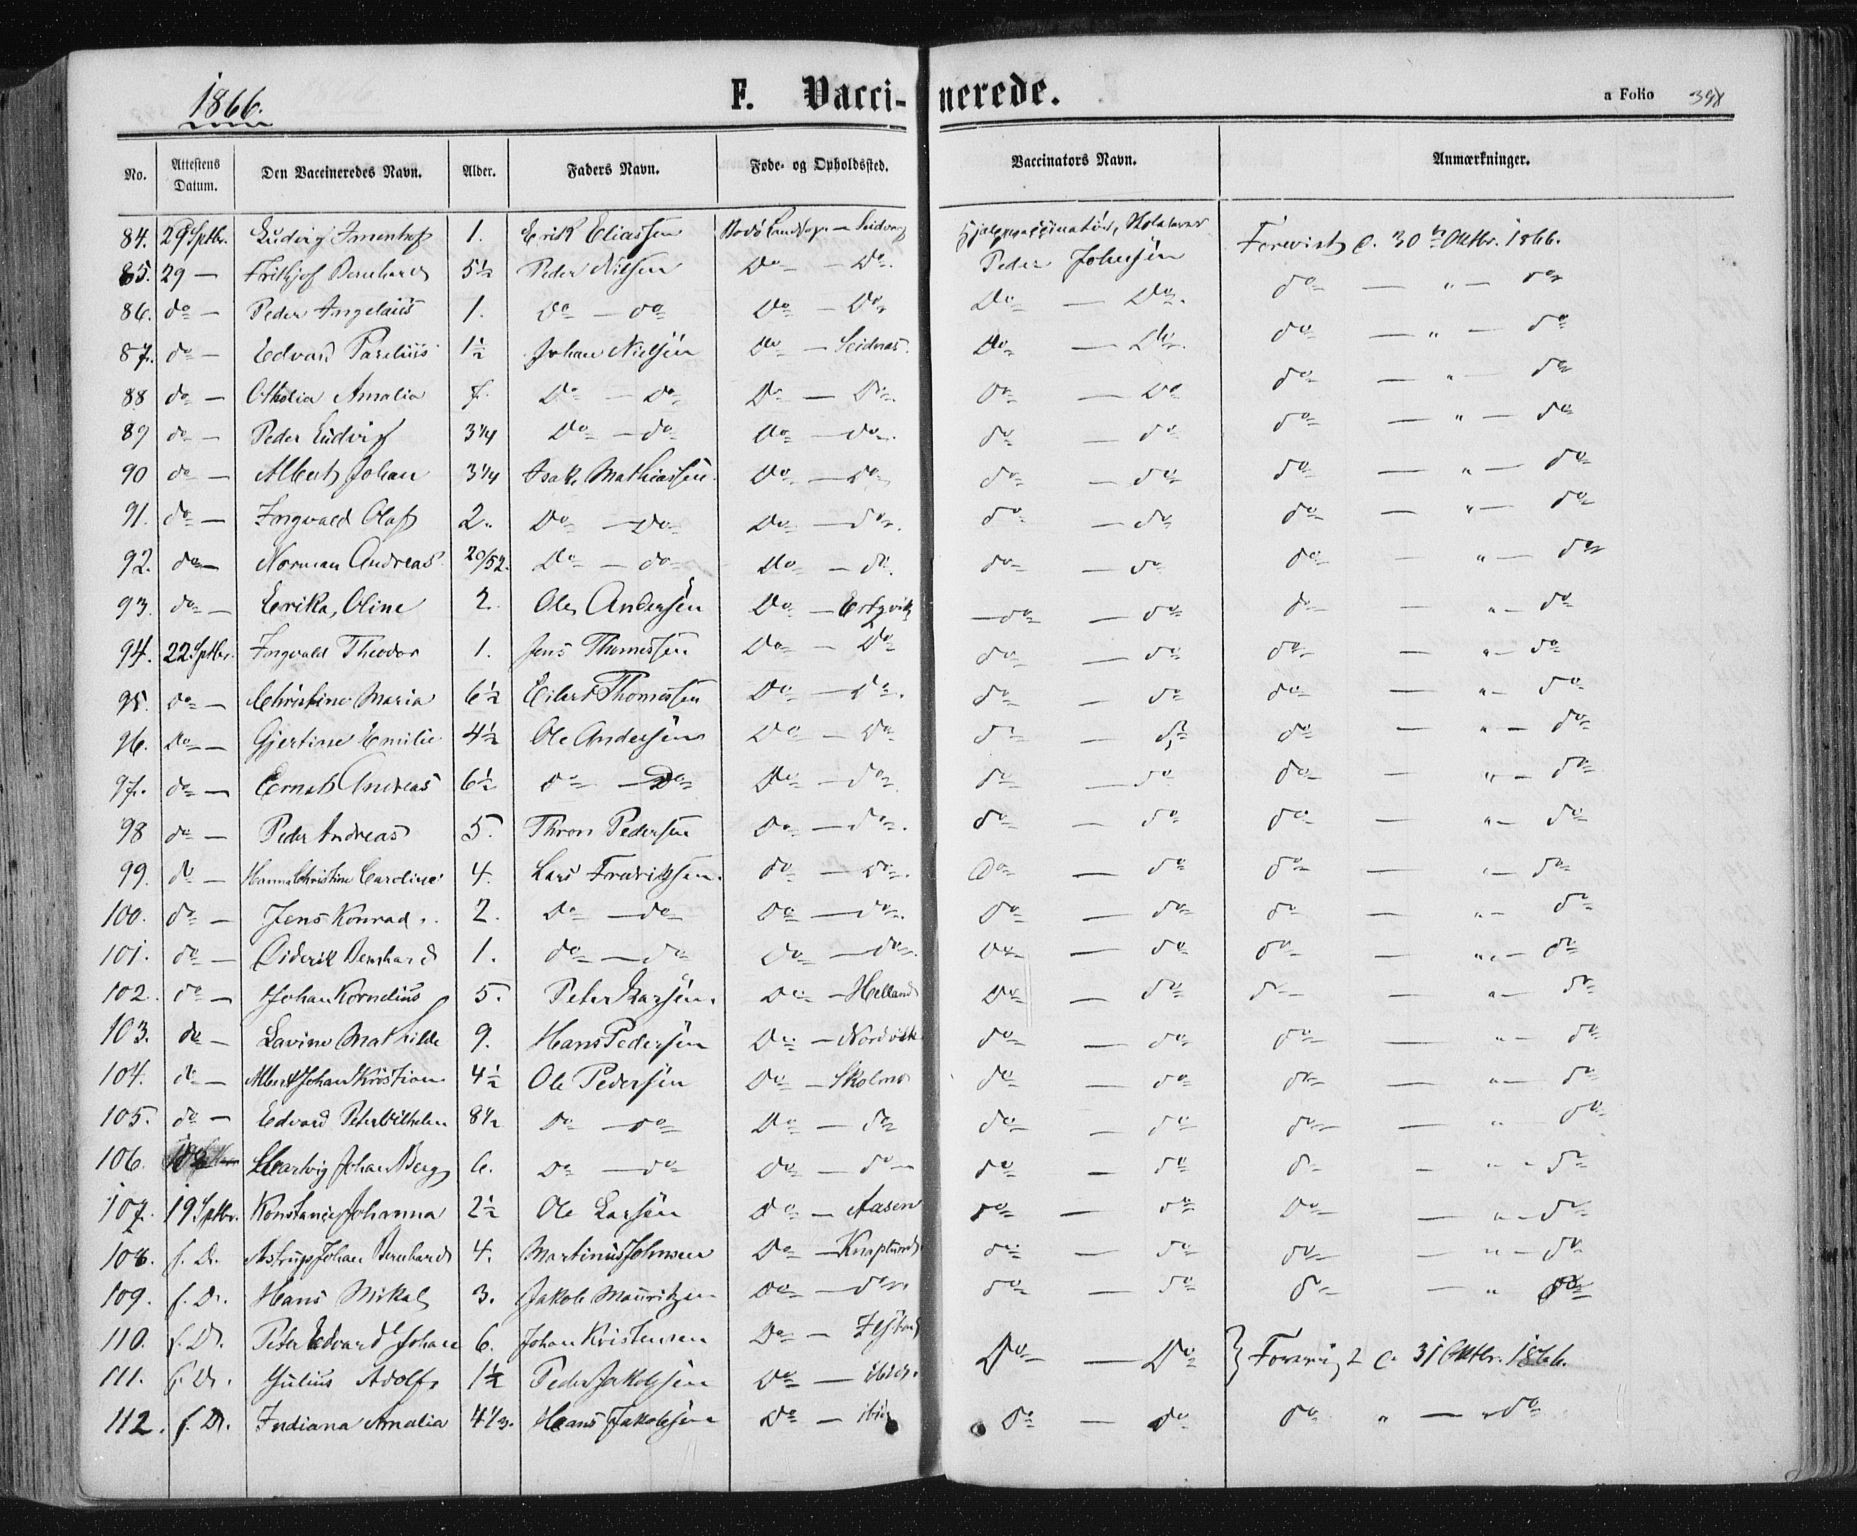 1866.
F. Vacci- nerede.
a Folio
No. Attestens Datum. Den Vaccineredes Navn. Alder. Faders Navn. Føde- og Opholdssted. Vaccinators Navn. Anmærkninger.
84. 29 Sptbr. Ludvig 1. Erik Eliassen
85. 29 — Frithjof Bernhard 5½ Peder Nilsen Do — Do. Peder Johnsen Forevist d. 30te Oktbr. 1866.
86. do — Peder Angelaus 1. do — do Do — Do Do — Do. do — " — do
87. do — Edvard Parelius 1½ Johan Nielsen do — Do — Do. do — " — do
88 do — Othelia Amalia Do — Do Do — Do. Do — Do do — " — do
89 do — Peder Ludvig 3¼ Do — do do — do. do — do do — " — do
90 do — Albert Johan 3¼ Isak Mathiassen Do — do do — do do — " — do
91. do — Ingvald Olaf 2. Do — do Do — do. do — do do — " — do
92. do — Norman Andreas 20/52. Do — do do — do. do — do do — " — do
93. do — Erika, Oline 2. Ole Andersen Do — do — do do — " — do
94. 22. Sptbr. Ingvald Theodor 1. Jens Thomessen Do — Do do — do do — " — do
95. do — Christine Maria 6½ Eilert Thomessen Do — do. do — do do — " — do
96. Do — Gjertine Emilie 4½ Ole Andersen Do — do do — do do — " — do
97. do — Ernst Andreas 6½ do — Do Do — do do — do do — " — do
98 do — Peder Andreas 5. Thron Pedersen Do — do. do — do do — " — do
99. do — Hanna Christine Caroline 4. Lars Fredriksen. do — do. Do — do do — " — do
100. do — Jens Konrad. 2. Do — do Do — do. do — do do — " — do
101. do — Diderik Bernhard 1. do — do do — do. do — do do — " — do
102. do — Johan Kornelius 5. Peter Larsen. Do — Helland Do — do do — " — do
103. do — Lavine Mathilde 9. Hans Pedersen Do — Nordvik do — do do — " — do
104. do — Albert Johan Kristian 4½ Ole Pedersen Do — Skolmo do — do do — " — do
105. do — Edvard Peter Vilhelm 8½ do — do Do — do do — do do — " — do
106. Hartvig Johan Berg 6. Do — do do — do do — do do — " — do
107. 19 Sptbr. Konstance Johanna 2½ Ole Larsen do — Aasen do — do Do — " — do
108. f. D. Astrup Johan Bernhard 4. Martinus Johnsen Do — Knaplund do — do do — " — do
109. f. D. Hans Mikal 3. Jakob Mauritzen Do — do do — do do — " — do
110. f. D. Peter Edvard Johan 6. Johan Kristensen Do — Do — Do Forevist d. 31 Oktbr. 1866.
111. f. D. Julius Adolf 1½ Peder Jakobsen Do — ibid.
112. f. D. Indiana Amalia 4⅓. Hans Jakobsen Do — ibid do — do do " — " do